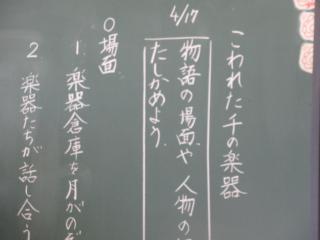 こわれた千の楽器
4/17
物語の場面や人物の
たしかめよう。
○場面
1 楽器倉庫を月がのぞ
2 楽器たちが話し合う